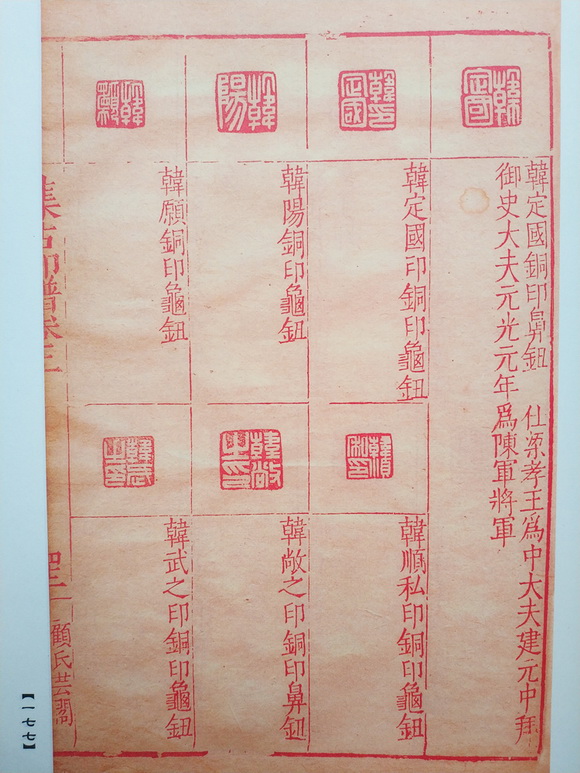 韓定國
韓定國銅印鼻鈕 仕梁孝王為中大夫建元中拜
御史大夫元光元年為陳軍將軍
韓定國印
韓定國印銅印龜鈕
韓順私印銅印龜鈕
韓陽
韓陽銅印龜鈕
韓敞之印
韓敞之印銅印鼻鈕
韓願
韓願銅印龜鈕
韓武之印
韓武之印銅印龜鈕
集古印譜卷三
顧氏芸閣
【一七七】